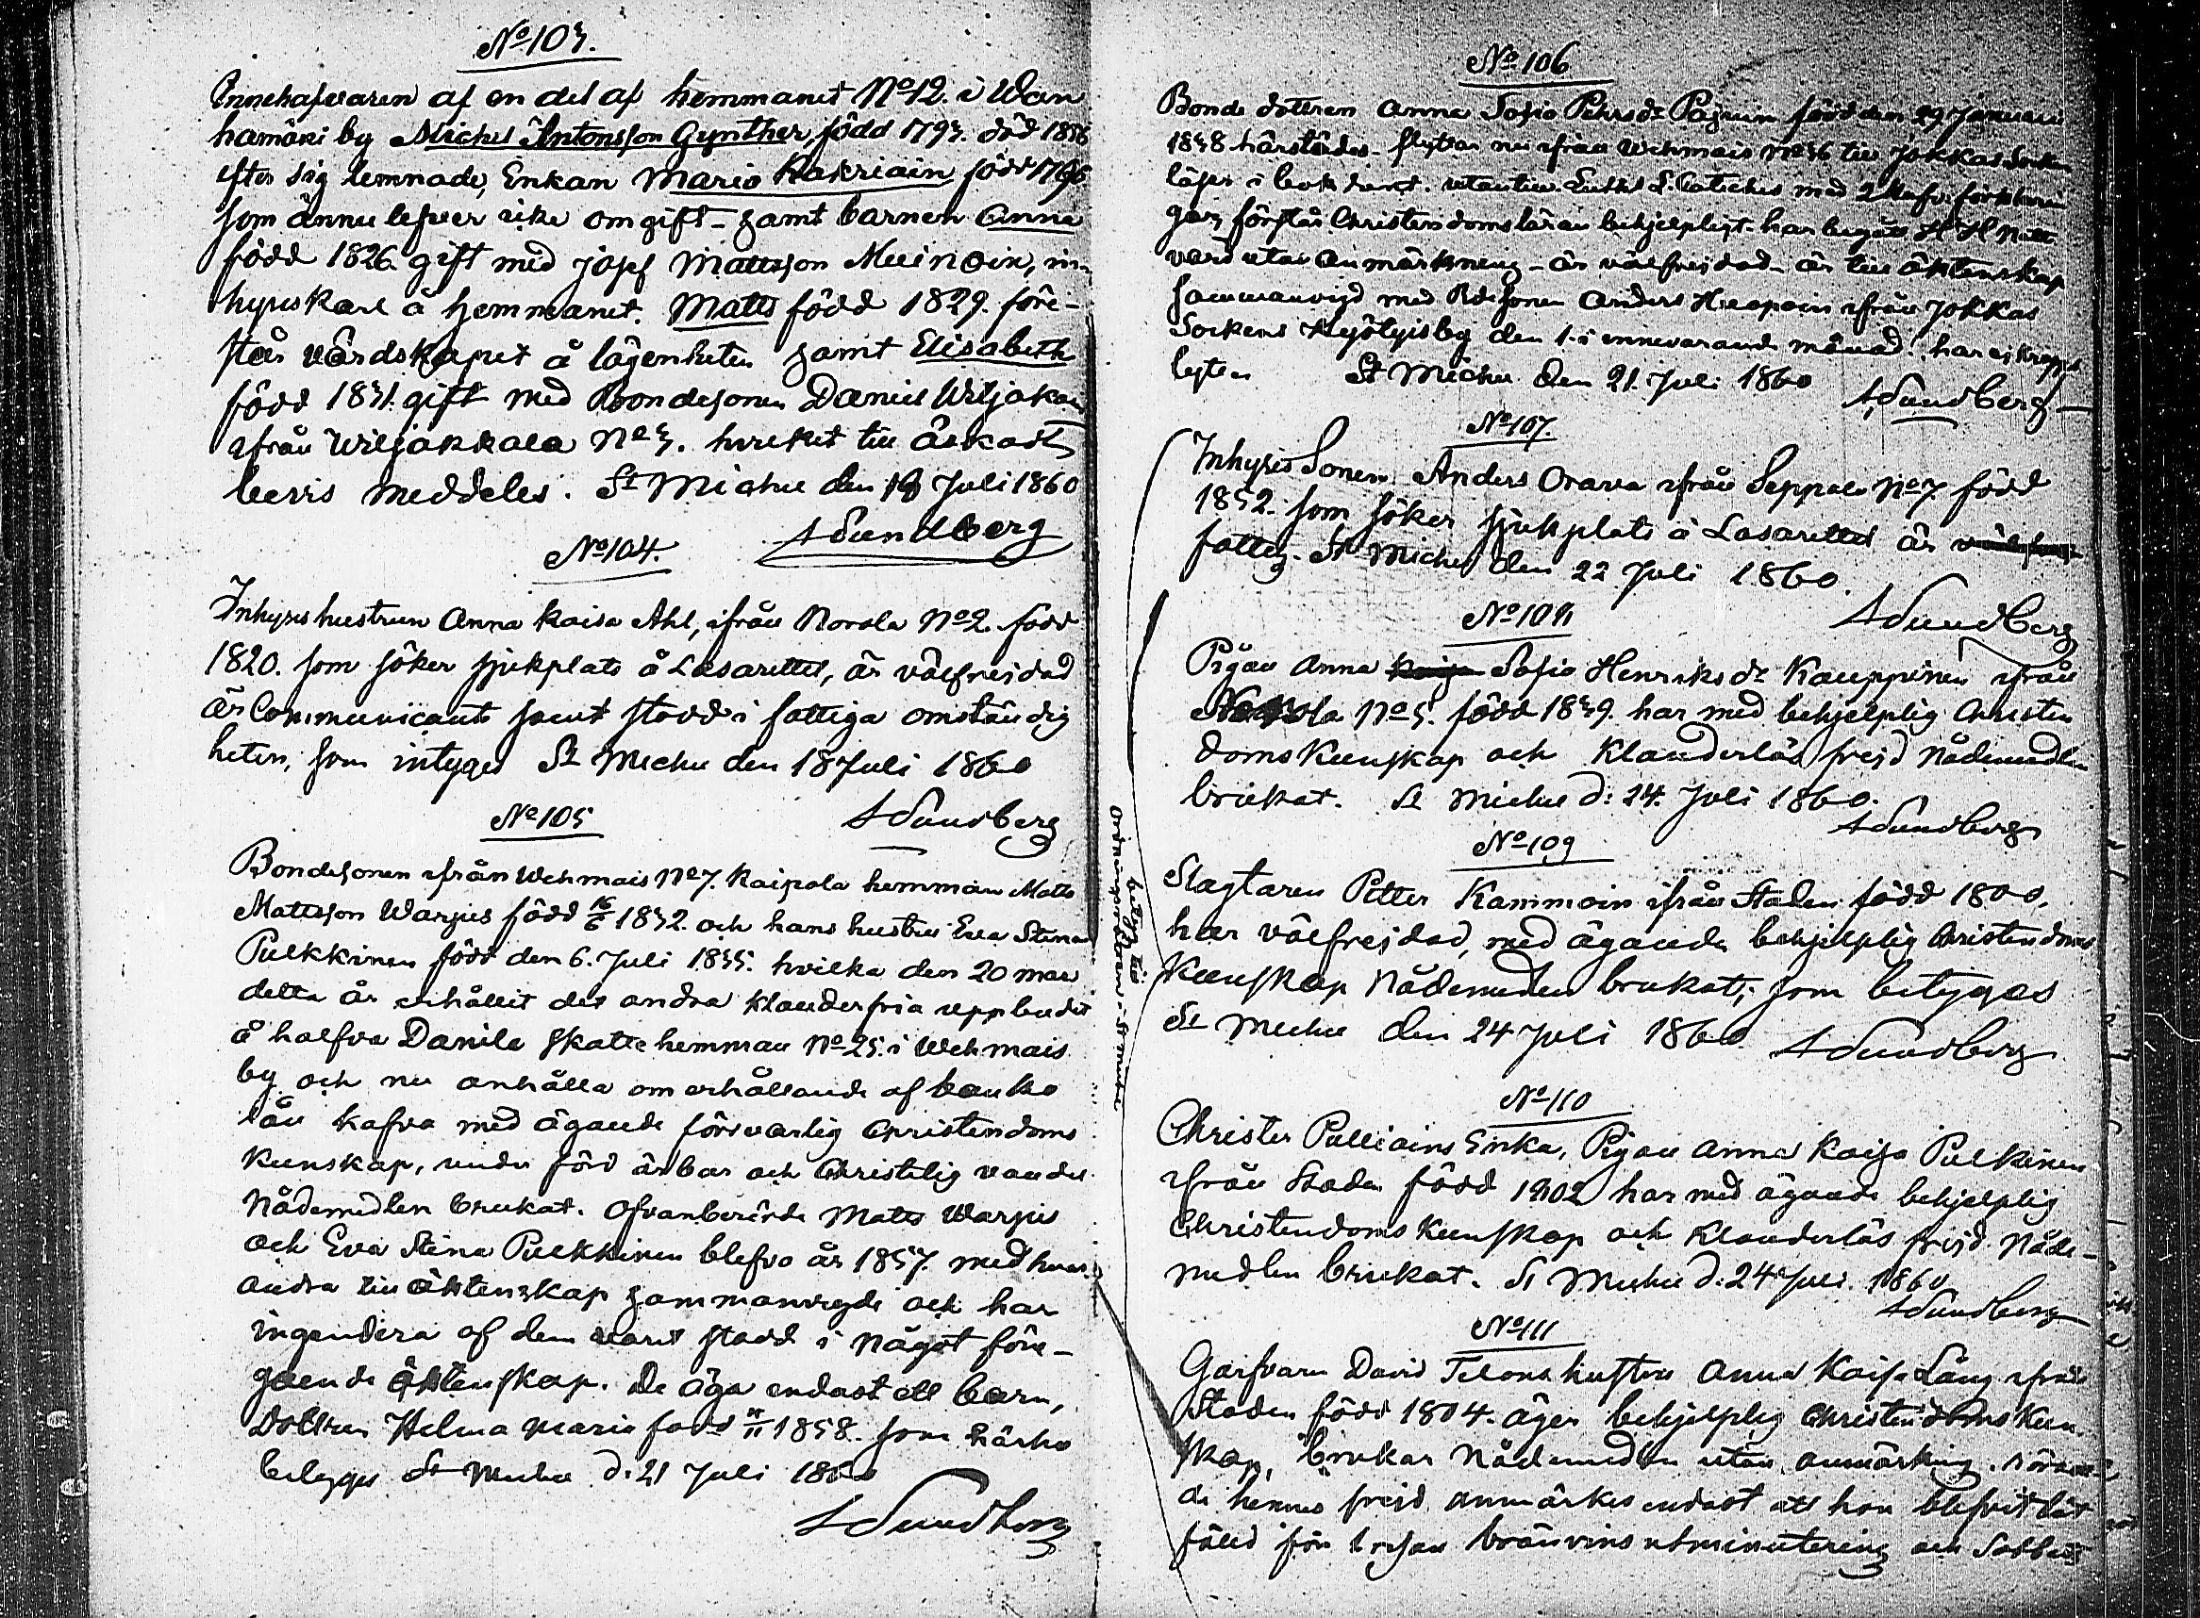 No 103.
Innehafvaren af en del af hemmanet No 12. i Wan
hamäki by Michel Antonsson Gynther, född 1793. död 1856
efter sig lemnade, Enkan Maria Kakriain född 1796
som ännu lefver icke omgift - samt barnen Anna
född 1826 gift med Josef Mattsson Muinoin, in-
hyses Karl å hemmanet. Matts född 1829. före-
står värdskapet å lägenheten samt Elisabeth
född 1831. gift med Bondesonen Daniel Wiljakain
ifrån Wiljakkala No 3. hvilket till åskadt
bevis meddeles. St Michel den 18 Juli 1860
A Sundberg
No 104.
Inhyses hustrun Anna Kaisa Ahl, ifrån Norola No 2. född
1820. som söker sjukplats å Lasarettet, är välfrejdad
är Communicant samt stadd i fattiga omständig
heter, som intygas St Michel den 18 Juli 1860
A Sundberg
No 105
Bondesonen ifrån Wehmais No 7. Kaipola hemman Matts
Mattsson Warpus född 16/6 1832. och hans hustru Eva Stina
Pulkkinen född den 6. Juli 1835. hvilka den 20 mars
detta år erhållit det andra klanderfria uppbudet
å halfva Danila skatte hemman No 25. i Wehmais
by och nu anhålla om erhållande af banko
lån hafva med ägande försvarlig Christendoms
Kunskap, under förd ärbar och Christelig vandel
Nådemedlen brukat. Ofvanberörde Matts Warpus
och Eva Stina Pulkkinen blefvo år 1857. med hvar
andra till äktenskap sammanvigde och har
ingendera af dem varit stadd i något före-
gående äktenskap. De äga endast ett barn,
Dottren Helena Maria född 1858. som härho
betygges St Michel d. 21 Juli 1860
A Sundberg
No 106
Bonde dottren Anna Sofia Pehrsdr född den 29 Januari
1838 härstädes - flyttar nu ifrån Wehmais No 36 till Jokkas Socken
läser i bok utantill Luthers L. Catechis med 2 förklarin
gar, förstår Christendomsläran behjelpligt - har begått H H Natt
vard utan anmärkning - är välfrejdad - är till äktenskap
sammanvigd med Bdesonen Anders Heapoin ifrån Jokkas
Sockens by den 1. i innevarande månad. har ej kropps
lyten St Michel den 21. Juli 1860
A Sundberg
No 107.
Inhyses Sonen Anders Orava ifrån Seppälä No 7. född
1852. som söker sjukplats å Lasarettet är
fattig. St Michel den 22 Juli 1860.
A Sundberg
No 108
Pigan Anna Kaisa Sofia Henriksdr Kauppinen ifrån
No 5. född 1839. har med behjelplig Christen
doms Kunskap och klanderlös frejd Nådemedlen
brukat. St Michel d: 24. Juli 1860.
A Sundberg
No 109
Slagtaren Petter Kammoin ifrån Staden född 1800.
har välfrejdad, med ägande behjelplig Christendoms
Kunskap Nådemedlen brukat; som betygas
St Michel den 24 Juli 1860
A Sundberg
No 110
Christer Pulliains Enka, Pigan Anna Kaisa Pulkinen
ifrån Staden född 1802 har med ägande behjelplig
Christendoms Kunskap och klanderlös frejd Nåde-
medlen brukat. St Michel d: 24 Juli 1860
A Sundberg
No 111
Garfvaren David Telons hustru Anna Kaisa Lång ifrån
Staden född 1804. äger behjelplig Christendoms Kun
skap, brukar Nådemedlen utan anmärkning.
de hennes frejd anmärkes endast att hon blefvit bot
fälld för brännvins utminutering och Sabbats